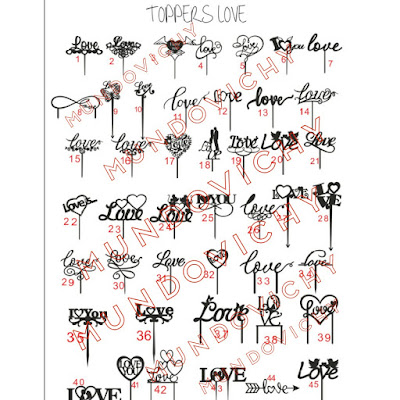 TOPPERS LOVE
Love Love love love I you love
1 2 4 5 6 7
MUNDOVICHY
love Love love love
8 9 10 11 12 13 14
MUNDOVICHY
love love Love Love Love
15 16 17 18 19 20 21
Love is... Love Love I YOU love LOVE
22 23 24 25 26 28
MUNDOVICHY
Love Love love love love
29 30 31 32 33 34
I You Love Love Love Love
35 36 37 38 39
MUNDOVICHY
LOVE LOVE Love LOVE love Love
40 41 42 43 44 45